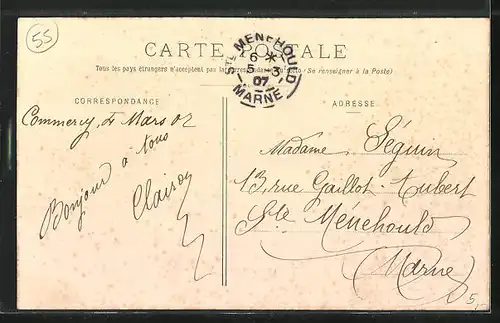 55
CARTE POSTALE
Tous les pays étrangers n'acceptent pas la correspondance au recto (Se renseigner à la Poste)
STE MENEHOULD
6 *
5 - 3
07
MARNE
CORRESPONDANCE
Commercy, Mars 07
Bonjour à tous
Clairon
ADRESSE
Madame Séguin
13, rue Gaillot-Aubert
Ste Ménehould
(Marne)
5,-